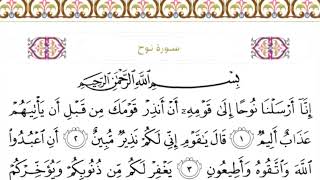 سورة نوح
بِسْمِ اللَّهِ الرَّحْمَٰنِ الرَّحِيمِ
إِنَّا أَرْسَلْنَا نُوحًا إِلَىٰ قَوْمِهِۦٓ أَنْ أَنذِرْ قَوْمَكَ مِن قَبْلِ أَن يَأْتِيَهُمْ
عَذَابٌ أَلِيمٌ ١ قَالَ يَٰقَوْمِ إِنِّي لَكُمْ نَذِيرٌ مُّبِينٌ ٢ أَنِ اعْبُدُوا
اللَّهَ وَاتَّقُوهُ وَأَطِيعُونِ ٣ يَغْفِرْ لَكُم مِّن ذُنُوبِكُمْ وَيُؤَخِّرْكُمْ